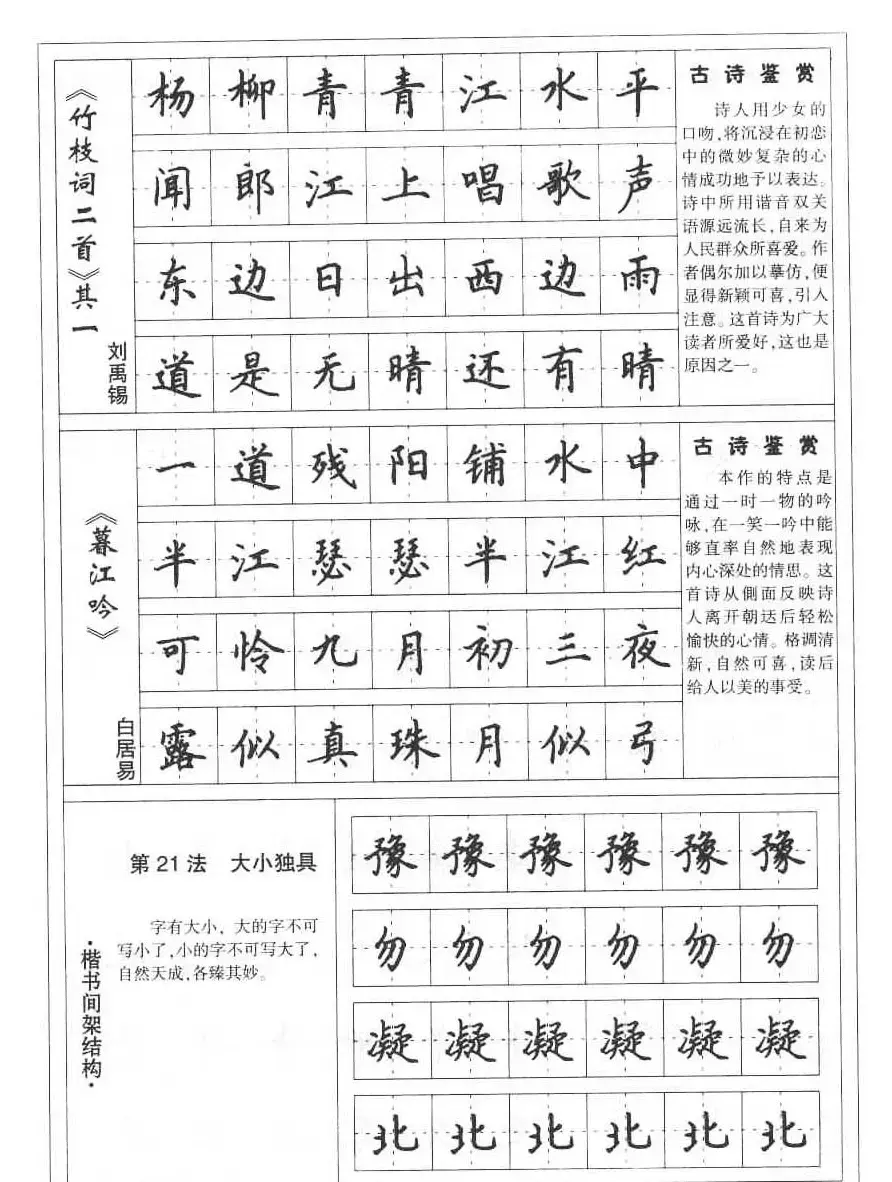 《竹枝词二首》其一
刘禹锡
杨柳青青江水平
闻郎江上唱歌声
东边日出西边雨
道是无晴还有晴
古诗鉴赏
诗人用少女的
口吻,将沉浸在初恋
中的微妙复杂的心
情成功地予以表达。
诗中所用谐音双关
语源远流长,自来为
人民群众所喜爱。作
者偶尔加以摹仿,便
显得新颖可喜,引人
注意。这首诗为广大
读者所爱好,这也是
原因之一。
《暮江吟》
白居易
一道残阳铺水中
半江瑟瑟半江红
可怜九月初三夜
露似真珠月似弓
古诗鉴赏
本作的特点是
通过一时一物的吟
咏,在一笑一吟中能
够直率自然地表现
内心深处的情思。这
首诗从侧面反映诗
人离开朝迗后轻松
愉快的心情。格调清
新,自然可喜,读后
给人以美的事受。
·楷书间架结构·
第21法 大小独具
字有大小, 大的字不可
写小了,小的字不可写大了,
自然天成,各臻其妙。
豫豫豫豫豫豫
勿勿勿勿勿勿
凝凝凝凝凝凝
北北北北北北